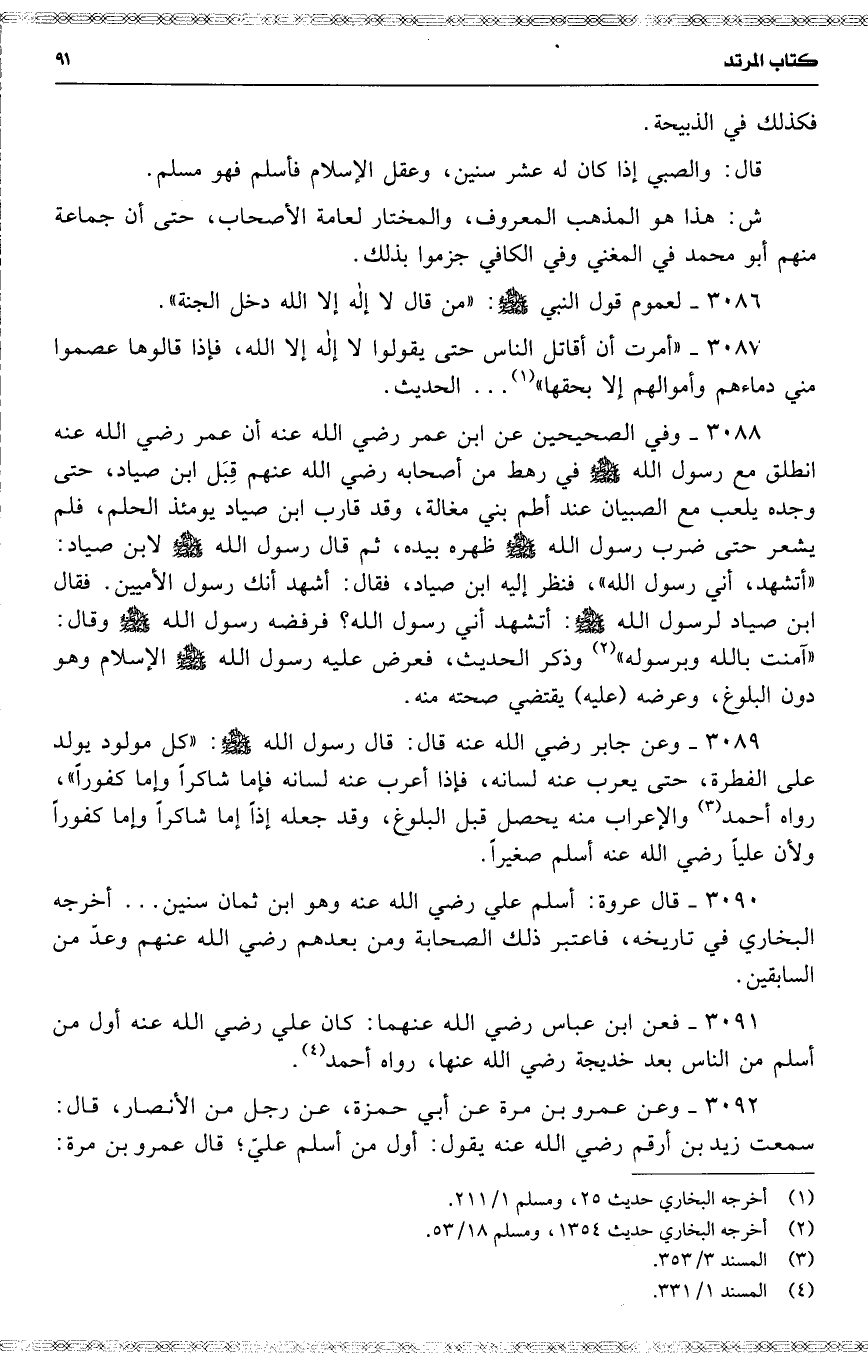 كتاب المرتد ٩١
فكذلك في الذبيحة.
قال: والصبي إذا كان له عشر سنين، وعقل الإسلام فأسلم فهو مسلم.
ش: هذا هو المذهب المعروف، والمختار لعامة الأصحاب، حتى أن جماعة
منهم أبو محمد في المغني وفي الكافي جزموا بذلك.
٣٠٨٦ ـ لعموم قول النبي ﷺ: «من قال لا إلٰه إلا الله دخل الجنة».
٣٠٨٧ ـ «أمرت أن أقاتل الناس حتى يقولوا لا إلٰه إلا الله، فإذا قالوها عصموا
مني دماءهم وأموالهم إلا بحقها»(١)... الحديث.
٣٠٨٨ ـ وفي الصحيحين عن ابن عمر رضي الله عنه أن عمر رضي الله عنه
انطلق مع رسول الله ﷺ في رهط من أصحابه رضي الله عنهم قِبَل ابن صياد، حتى
وجده يلعب مع الصبيان عند أطم بني مغالة، وقد قارب ابن صياد يومئذ الحلم، فلم
يشعر حتى ضرب رسول الله ﷺ ظهره بيده، ثم قال رسول الله ﷺ لابن صياد:
«أتشهد، أني رسول الله»، فنظر إليه ابن صياد، فقال: أشهد أنك رسول الأميين. فقال
ابن صياد لرسول الله ﷺ: أتشهد أني رسول الله؟ فرفضه رسول الله ﷺ وقال:
«آمنت بالله وبرسوله»(٢) وذكر الحديث، فعرض عليه رسول الله ﷺ الإسلام وهو
دون البلوغ، وعرضه (عليه) يقتضي صحته منه.
٣٠٨٩ ـ وعن جابر رضي الله عنه قال: قال رسول الله ﷺ: «كل مولود يولد
على الفطرة، حتى يعرب عنه لسانه، فإذا أعرب عنه لسانه فإما شاكراً وإما كفوراً»،
رواه أحمد(٣) والإعراب منه يحصل قبل البلوغ، وقد جعله إذاً إما شاكراً وإما كفوراً
ولأن علياً رضي الله عنه أسلم صغيراً.
٣٠٩٠ ـ قال عروة: أسلم علي رضي الله عنه وهو ابن ثمان سنين... أخرجه
البخاري في تاريخه، فاعتبر ذلك الصحابة ومن بعدهم رضي الله عنهم وعدّ من
السابقين.
٣٠٩١ ـ فعن ابن عباس رضي الله عنهما: كان علي رضي الله عنه أول من
أسلم من الناس بعد خديجة رضي الله عنها، رواه أحمد(٤).
٣٠٩٢ ـ وعن عمرو بن مرة عن أبي حمزة، عن رجل من الأنصار، قال:
سمعت زيد بن أرقم رضي الله عنه يقول: أول من أسلم عليّ؛ قال عمرو بن مرة:
(١) أخرجه البخاري حديث ٢٥، ومسلم ٢١١/١.
(٢) أخرجه البخاري حديث ١٣٥٤، ومسلم ٥٣/١٨.
(٣) المسند ٣٥٣/٣.
(٤) المسند ٣٣١/١.